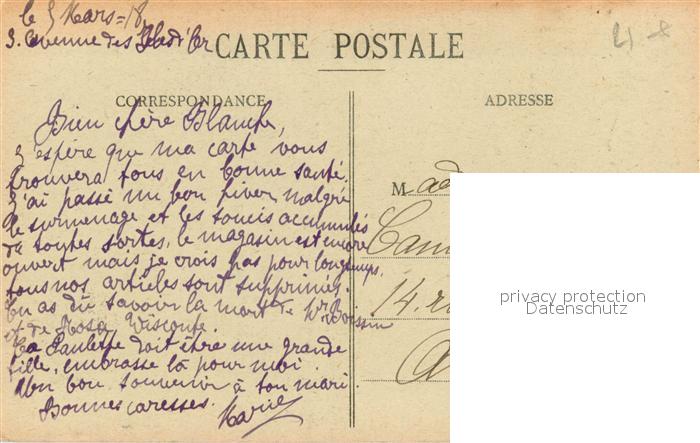 le 5 Mars = 18
3. avenue des
CARTE POSTALE
CORRESPONDANCE
ADRESSE
Bien chère Blanche,
J'espère que ma carte vous
trouvera tous en bonne santé.
J'ai passé un bon hiver malgré
le surmenage et les soucis accumulés
de toutes sortes, le magasin est encore
ouvert mais je crois pas pour longtemps,
tous nos articles sont supprimés.
Tu as dû savoir la mort de Mr Boissin
et de Rosa Visconte.
Ta Paulette doit être une grande
fille, embrasse là pour moi.
Un bon souvenir à ton mari.
Bonnes caresses.
Marie
M
14.
privacy protection
Datenschutz